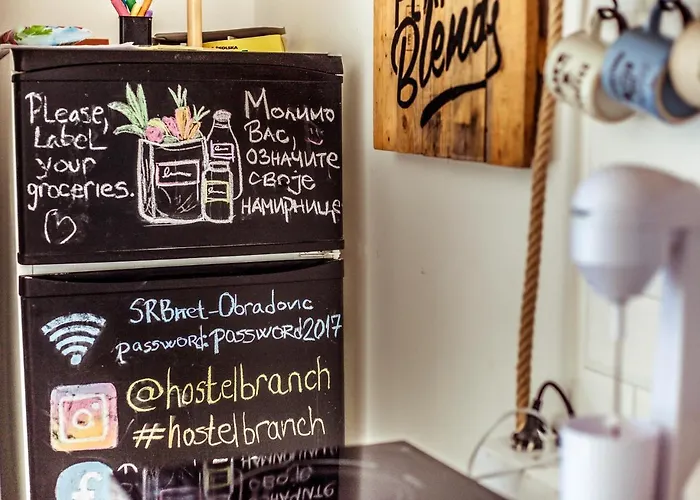 Please,
Label
your
groceries.
Молимо
Вас,
означите
своје
намирнице
SRBnet-Obradovic
password:password2017
@hostelbranch
#hostelbranch
Blends